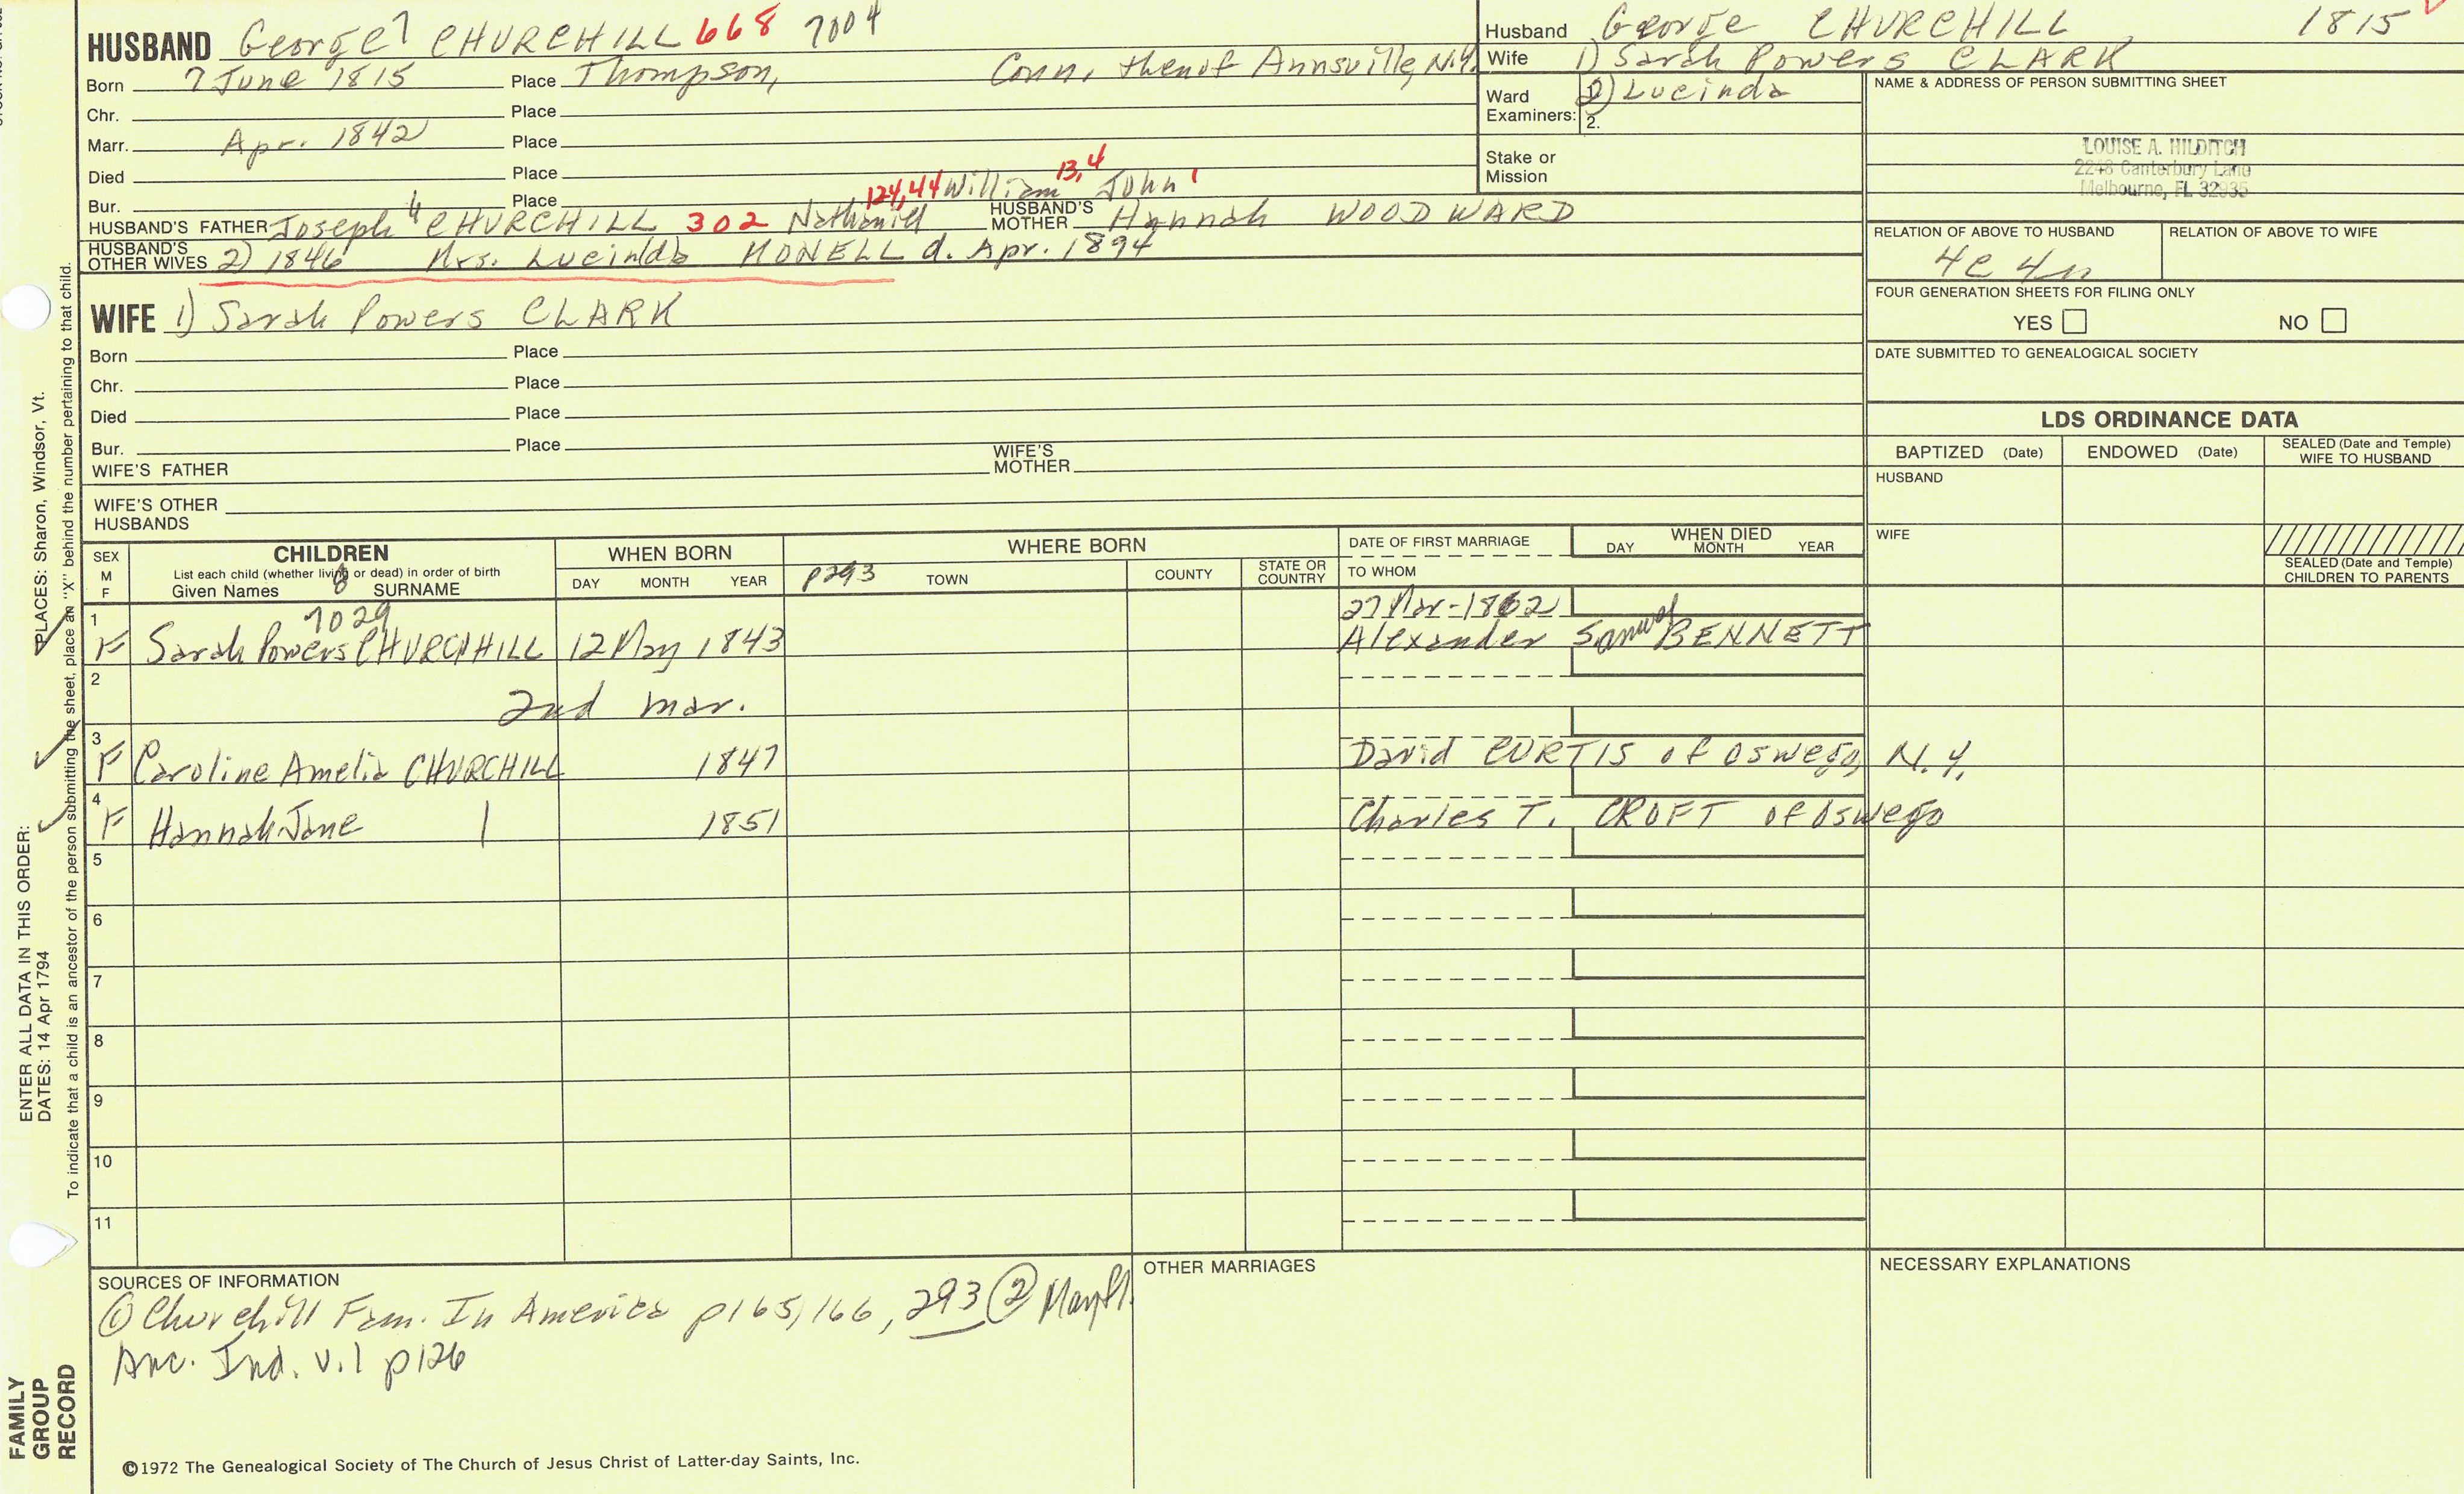 HUSBAND George 7 CHURCHILL 668 7004
Born 7 June 1815 Place Thompson, Conn, then of Annsville, N.Y.
Chr. Place
Marr. Apr. 1842 Place
Died Place
124,44 William 13,4 John 1
Bur. Place
HUSBAND'S FATHER Joseph 6 CHURCHILL 302 Nathaniel HUSBAND'S MOTHER Hannah WOODWARD
HUSBAND'S OTHER WIVES 2) 1846 Mrs. Lucinda MONELL d. Apr. 1894
WIFE 1) Sarah Powers CLARK
Born Place
Chr. Place
Died Place
Bur. Place
WIFE'S FATHER WIFE'S MOTHER
WIFE'S OTHER HUSBANDS
Husband George CHURCHILL 1815
Wife 1) Sarah Powers CLARK
Ward Examiners: 2) Lucinda
2.
Stake or Mission
NAME & ADDRESS OF PERSON SUBMITTING SHEET
LOUISE A. HILDITCH
2248 Canterbury Lane
Melbourne, FL 32935
RELATION OF ABOVE TO HUSBAND RELATION OF ABOVE TO WIFE
4c 4r
FOUR GENERATION SHEETS FOR FILING ONLY
YES NO
DATE SUBMITTED TO GENEALOGICAL SOCIETY
LDS ORDINANCE DATA
BAPTIZED (Date) ENDOWED (Date) SEALED (Date and Temple) WIFE TO HUSBAND
HUSBAND
WIFE
SEALED (Date and Temple) CHILDREN TO PARENTS
SEX M F
CHILDREN
List each child (whether living or dead) in order of birth
Given Names 8 SURNAME
WHEN BORN
DAY MONTH YEAR
WHERE BORN
p293 TOWN COUNTY STATE OR COUNTRY
DATE OF FIRST MARRIAGE
TO WHOM
WHEN DIED
DAY MONTH YEAR
1 7029 27 Mar-1862
F Sarah Powers CHURCHILL 12 May 1843 Alexander Samuel BENNETT
2 2nd mar.
3
F Caroline Amelia CHURCHILL 1847 David CURTIS of Oswego, N.Y.
4
F Hannah Jane | 1851 Charles T. CROFT of Oswego
5
6
7
8
9
10
11
SOURCES OF INFORMATION
① Churchill Fam. In America p165,166, 293 ② Mayfl.
Anc. Ind. v.1 p126
OTHER MARRIAGES
NECESSARY EXPLANATIONS
©1972 The Genealogical Society of The Church of Jesus Christ of Latter-day Saints, Inc.
FAMILY GROUP RECORD
ENTER ALL DATA IN THIS ORDER:
DATES: 14 Apr 1794
PLACES: Sharon, Windsor, Vt.
To indicate that a child is an ancestor of the person submitting the sheet, place an "X" behind the number pertaining to that child.